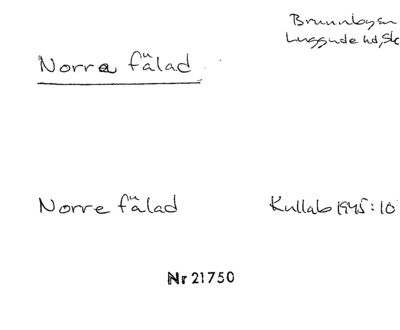 Brunnbyn
Luggude hd, Sk
Norra fälad
Norre fälad Kullab 1945:10
Nr 21750